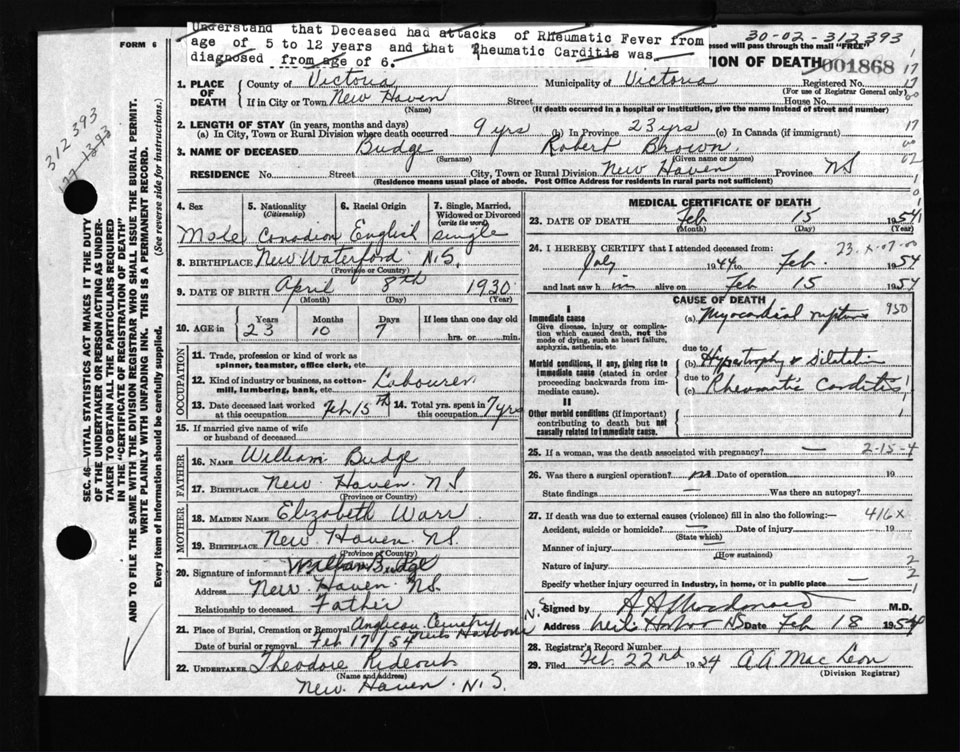 Understand that Deceased had attacks of Rheumatic Fever from
age of 5 to 12 years and that Rheumatic Carditis was
diagnosed from age of 6.
30-02-312393
FORM 6
ssed will pass through the mail "FREE"
TION OF DEATH 001868
1. PLACE OF DEATH County of Victoria Municipality of Victoria Registered No.
(For use of Registrar General only)
If in City or Town New Haven Street House No.
(Name) (If death occurred in a hospital or institution, give the name instead of street and number)
2. LENGTH OF STAY (in years, months and days)
(a) In City, Town or Rural Division where death occurred 9 yrs (b) In Province 23 yrs (c) In Canada (if immigrant)
3. NAME OF DECEASED Budge Robert Brown
(Surname) (Given name or names)
RESIDENCE No. Street City, Town or Rural Division New Haven Province NS
(Residence means usual place of abode. Post Office Address for residents in rural parts not sufficient)
4. Sex 5. Nationality (Citizenship) 6. Racial Origin 7. Single, Married, Widowed or Divorced (write the word)
Male Canadian English single
8. BIRTHPLACE New Waterford N.S.
(Province or Country)
9. DATE OF BIRTH April 8th 1930
(Month) (Day) (Year)
10. AGE in Years Months Days If less than one day old
23 10 7 hrs. or min.
OCCUPATION
11. Trade, profession or kind of work as
spinner, teamster, office clerk, etc.
12. Kind of industry or business, as cotton-
mill, lumbering, bank, etc. Labourer
13. Date deceased last worked at this occupation Feb 15th 14. Total yrs. spent in this occupation 7 yrs
15. If married give name of wife
or husband of deceased
FATHER
16. NAME William Budge
17. BIRTHPLACE New Haven NS
(Province or Country)
MOTHER
18. MAIDEN NAME Elizabeth Warr
19. BIRTHPLACE New Haven NS.
(Province or Country)
20. Signature of informant William Budge
Address New Haven NS.
Relationship to deceased Father
21. Place of Burial, Cremation or Removal Anglican Cemetry
Date of burial or removal Feb 17 / 54 Neils Harbour N.S.
22. UNDERTAKER Theodore Rideout
(Name and Address)
New Haven N.S.
MEDICAL CERTIFICATE OF DEATH
23. DATE OF DEATH Feb 15 1954
(Month) (Day) (Year)
24. I HEREBY CERTIFY that I attended deceased from:
July 1944 to Feb 1954
and last saw h im alive on Feb 15 1954
CAUSE OF DEATH
I
Immediate cause (a) Myocardial rupture
Give disease, injury or complica-
tion which caused death, not the
mode of dying, such as heart failure,
asphyxia, asthenia, etc
due to
Morbid conditions, if any, giving rise to
immediate cause (stated in order
proceeding backwards from im-
mediate cause).
(b) Hypertrophy & Dilitation
due to
(c) Rheumatic Carditis
II
Other morbid conditions (if important)
contributing to death but not
causally related to immediate cause.
25. If a woman, was the death associated with pregnancy? — 2-15-4
26. Was there a surgical operation? Date of operation 19
State findings — Was there an autopsy?
27. If death was due to external causes (violence) fill in also the following:— 416x
Accident, suicide or homicide? — Date of injury 19
(State which)
Manner of injury
(How sustained)
Nature of injury
Specify whether injury occurred in industry, in home, or in public place —
Signed by M.D.
Address Neils Harbor NS Date Feb 18 1954
28. Registrar's Record Number
29. Filed Feb. 22nd 1954 A A Mac Leon
(Division Registrar)
312 393
SEC. 46—VITAL STATISTICS ACT MAKES IT THE DUTY
OF THE UNDERTAKER OR PERSON ACTING AS UNDER-
TAKER TO OBTAIN ALL THE PARTICULARS REQUIRED
IN THE "CERTIFICATE OF REGISTRATION OF DEATH"
AND TO FILE THE SAME WITH THE DIVISION REGISTRAR WHO SHALL ISSUE THE BURIAL PERMIT.
WRITE PLAINLY WITH UNFADING INK. THIS IS A PERMANENT RECORD.
Every item of information should be carefully supplied. (See reverse side for instructions.)